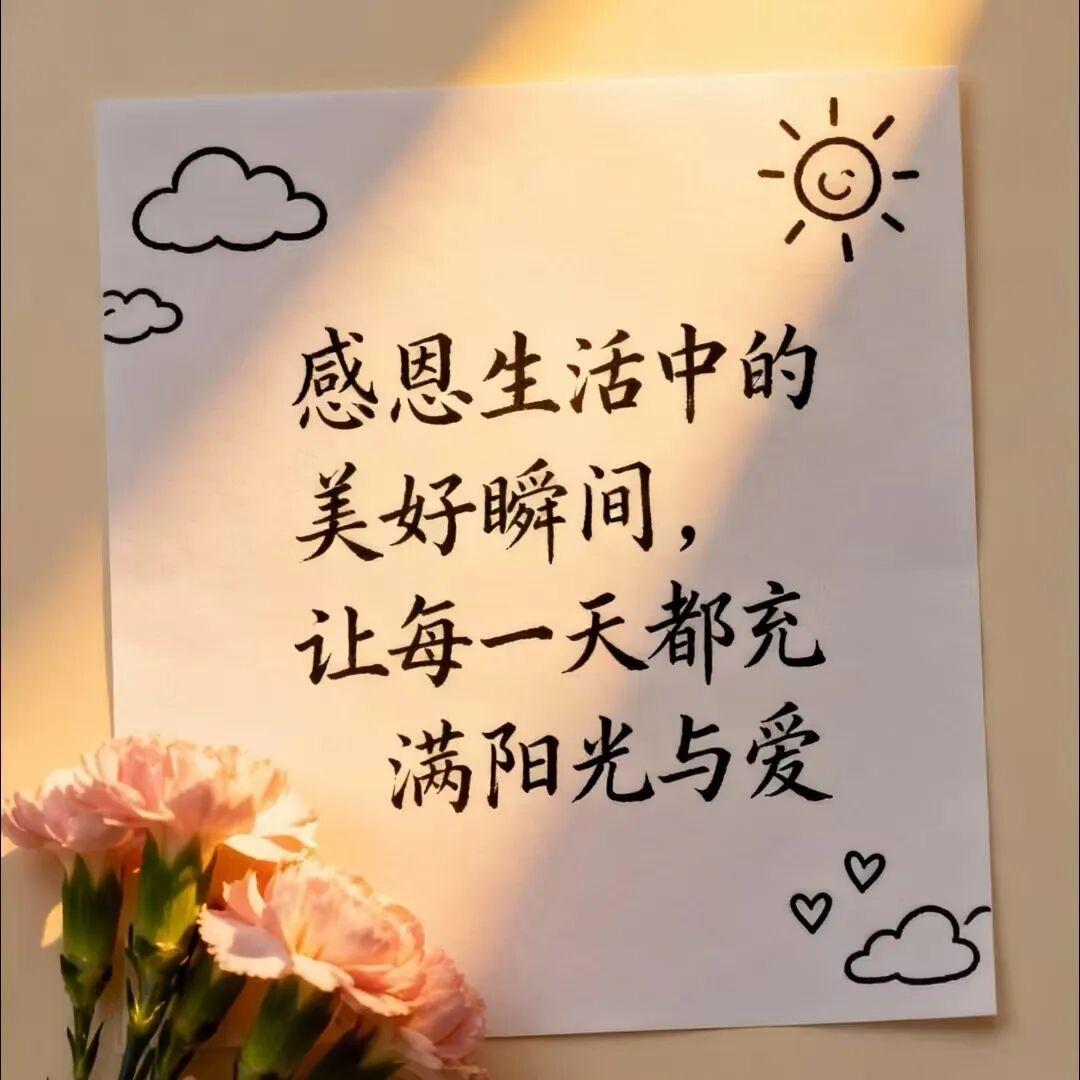 感恩生活中的
美好瞬间，
让每一天都充
满阳光与爱